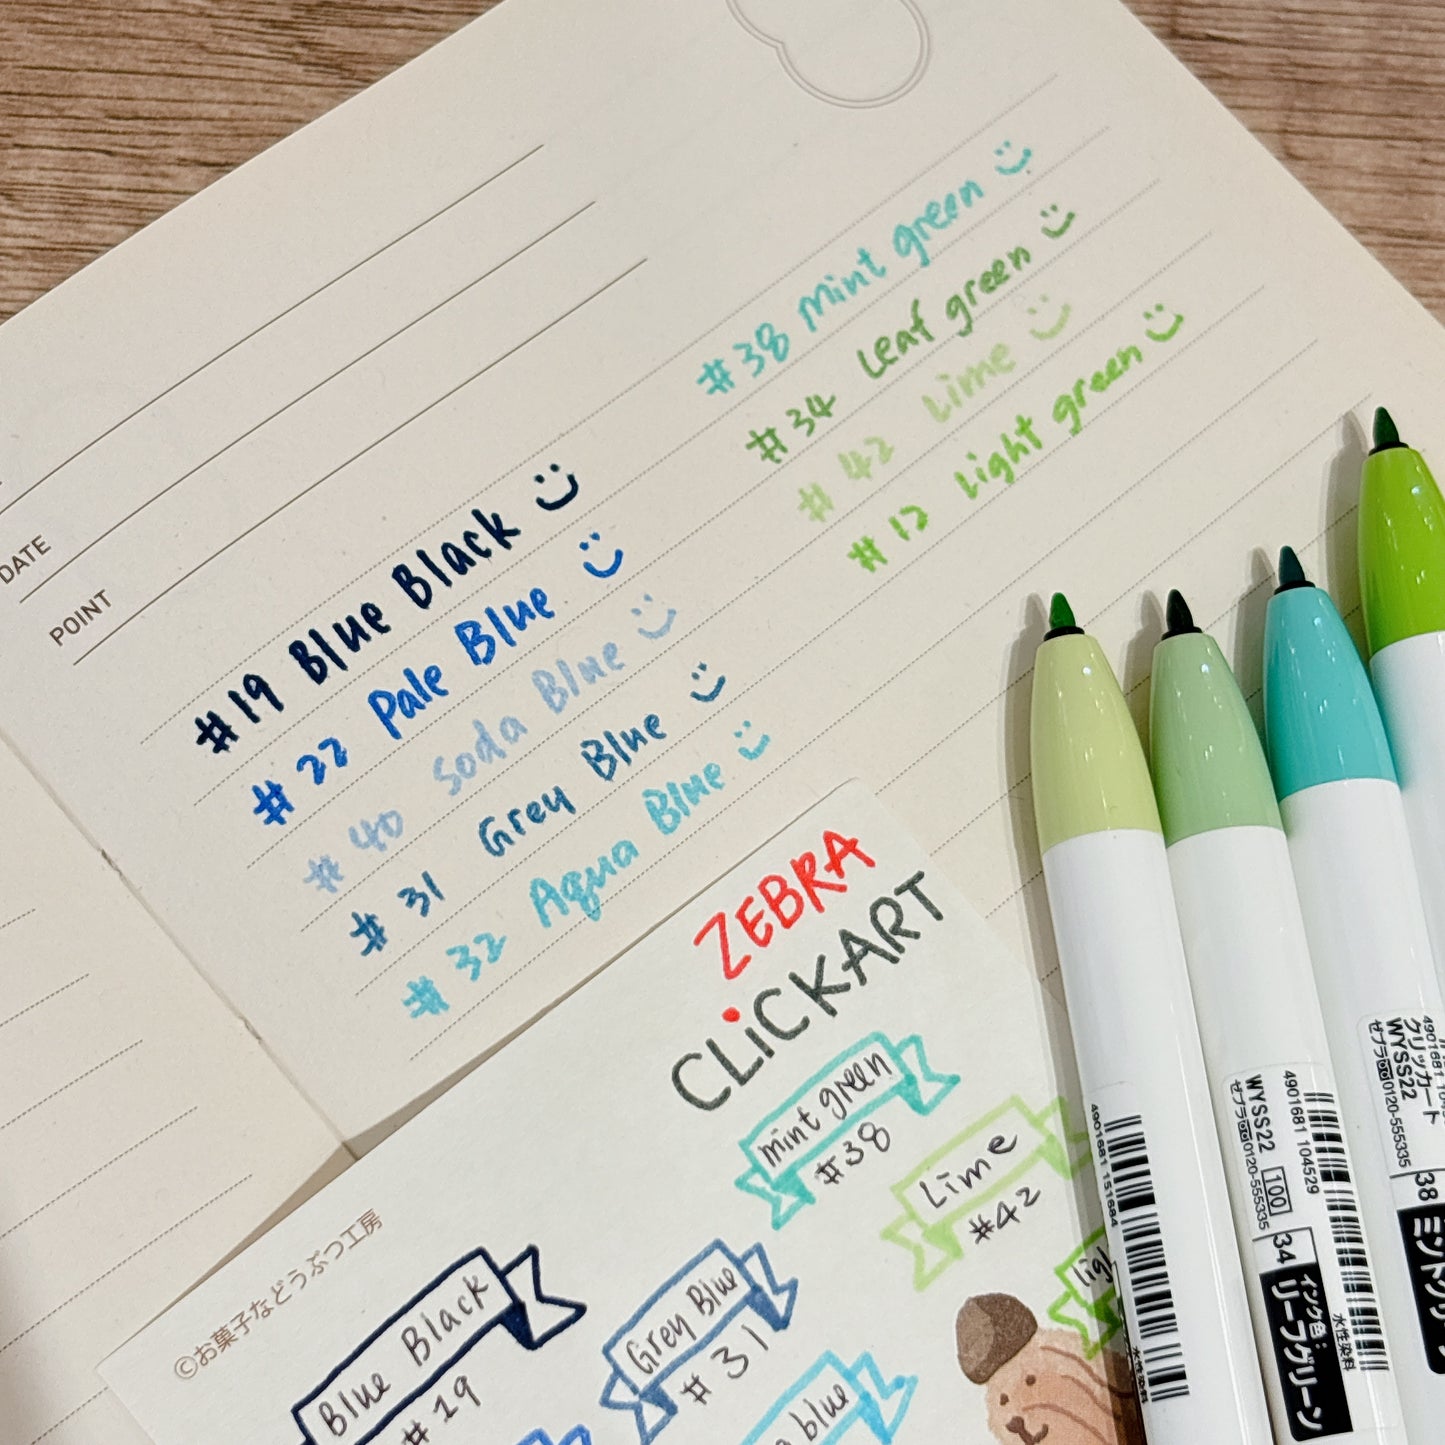 DATE
POINT
#19 Blue Black
#22 Pale Blue
#40 Soda Blue
#31 Grey Blue
#32 Aqua Blue
#38 Mint green
#34 Leaf green
#42 Lime
#12 Light green
ZEBRA
CLiCKART
mint green
#38
Lime
#42
ligh
©お菓子などうぶつ工房
Blue Black
#19
Grey Blue
#31
blue
4901681 151684
水性染料
4901681 104529
WYSS22 100
ゼブラ 0120-555335
34 インク色:
リーフグリーン
水性染料
クリッカート
WYSS22
ゼブラ 0120-555335
38 ミントグリー